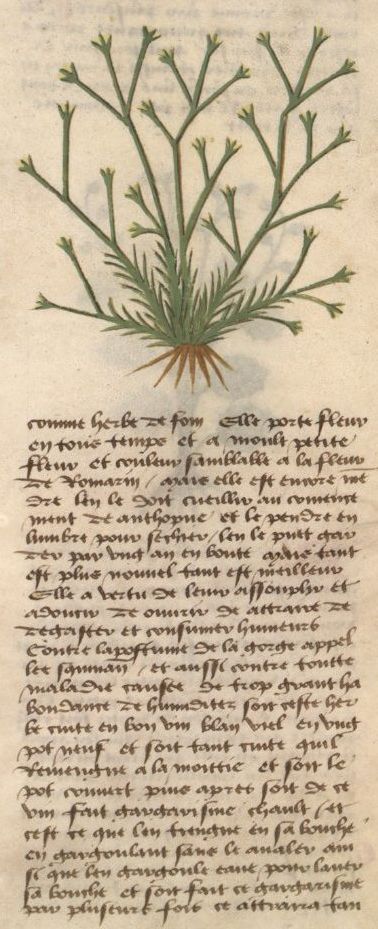 comme herbe de foin Elle porte fleur
en tous temps et a moult petite
fleur et couleur samblable a la fleur
de Romarin / mais elle est encore me
dre len le doit cueillir au comence
ment de anthopne et le pendre en
lumbre pour secher / len le puet gar
der par ung an en bonte mais tant
est plus nouvel tant est meilleur
Elle a vertu de leur assouplir et
adoucir de ouvrir de attraire de
degaster et consumer humeurs
Contre lapostume de la gorge appel
lee squinan / et aussi contre toutte
maladie causee de trop grant ha
bondance de humiditez soit ceste her
be cuite en bon vin blan viel en ung
pot neuf et soit tant cuite quil
Reviengne a la moittie et soit le
pot couvert puis apres soit de ce
vin fait gargarisme chault / et
cest ce que len trengne en sa bouche
en gargoulant sans le avaler ain
si que len gargoule eaue pour laver
sa bouche et soit fait ce gargarisme
par pluseurs fois ce attraira tan